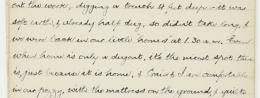 out the work, digging a trench 4 feet deep - it was
soft earth & already half dug, so didn't take long, &
we were back in our little 'homes' at 1.30 a.m. Even
when home is only a dugout, it's the most spot there
is, just because it is home, & Count I am comfortable
in our foggy, with the mattress on the ground, & quite